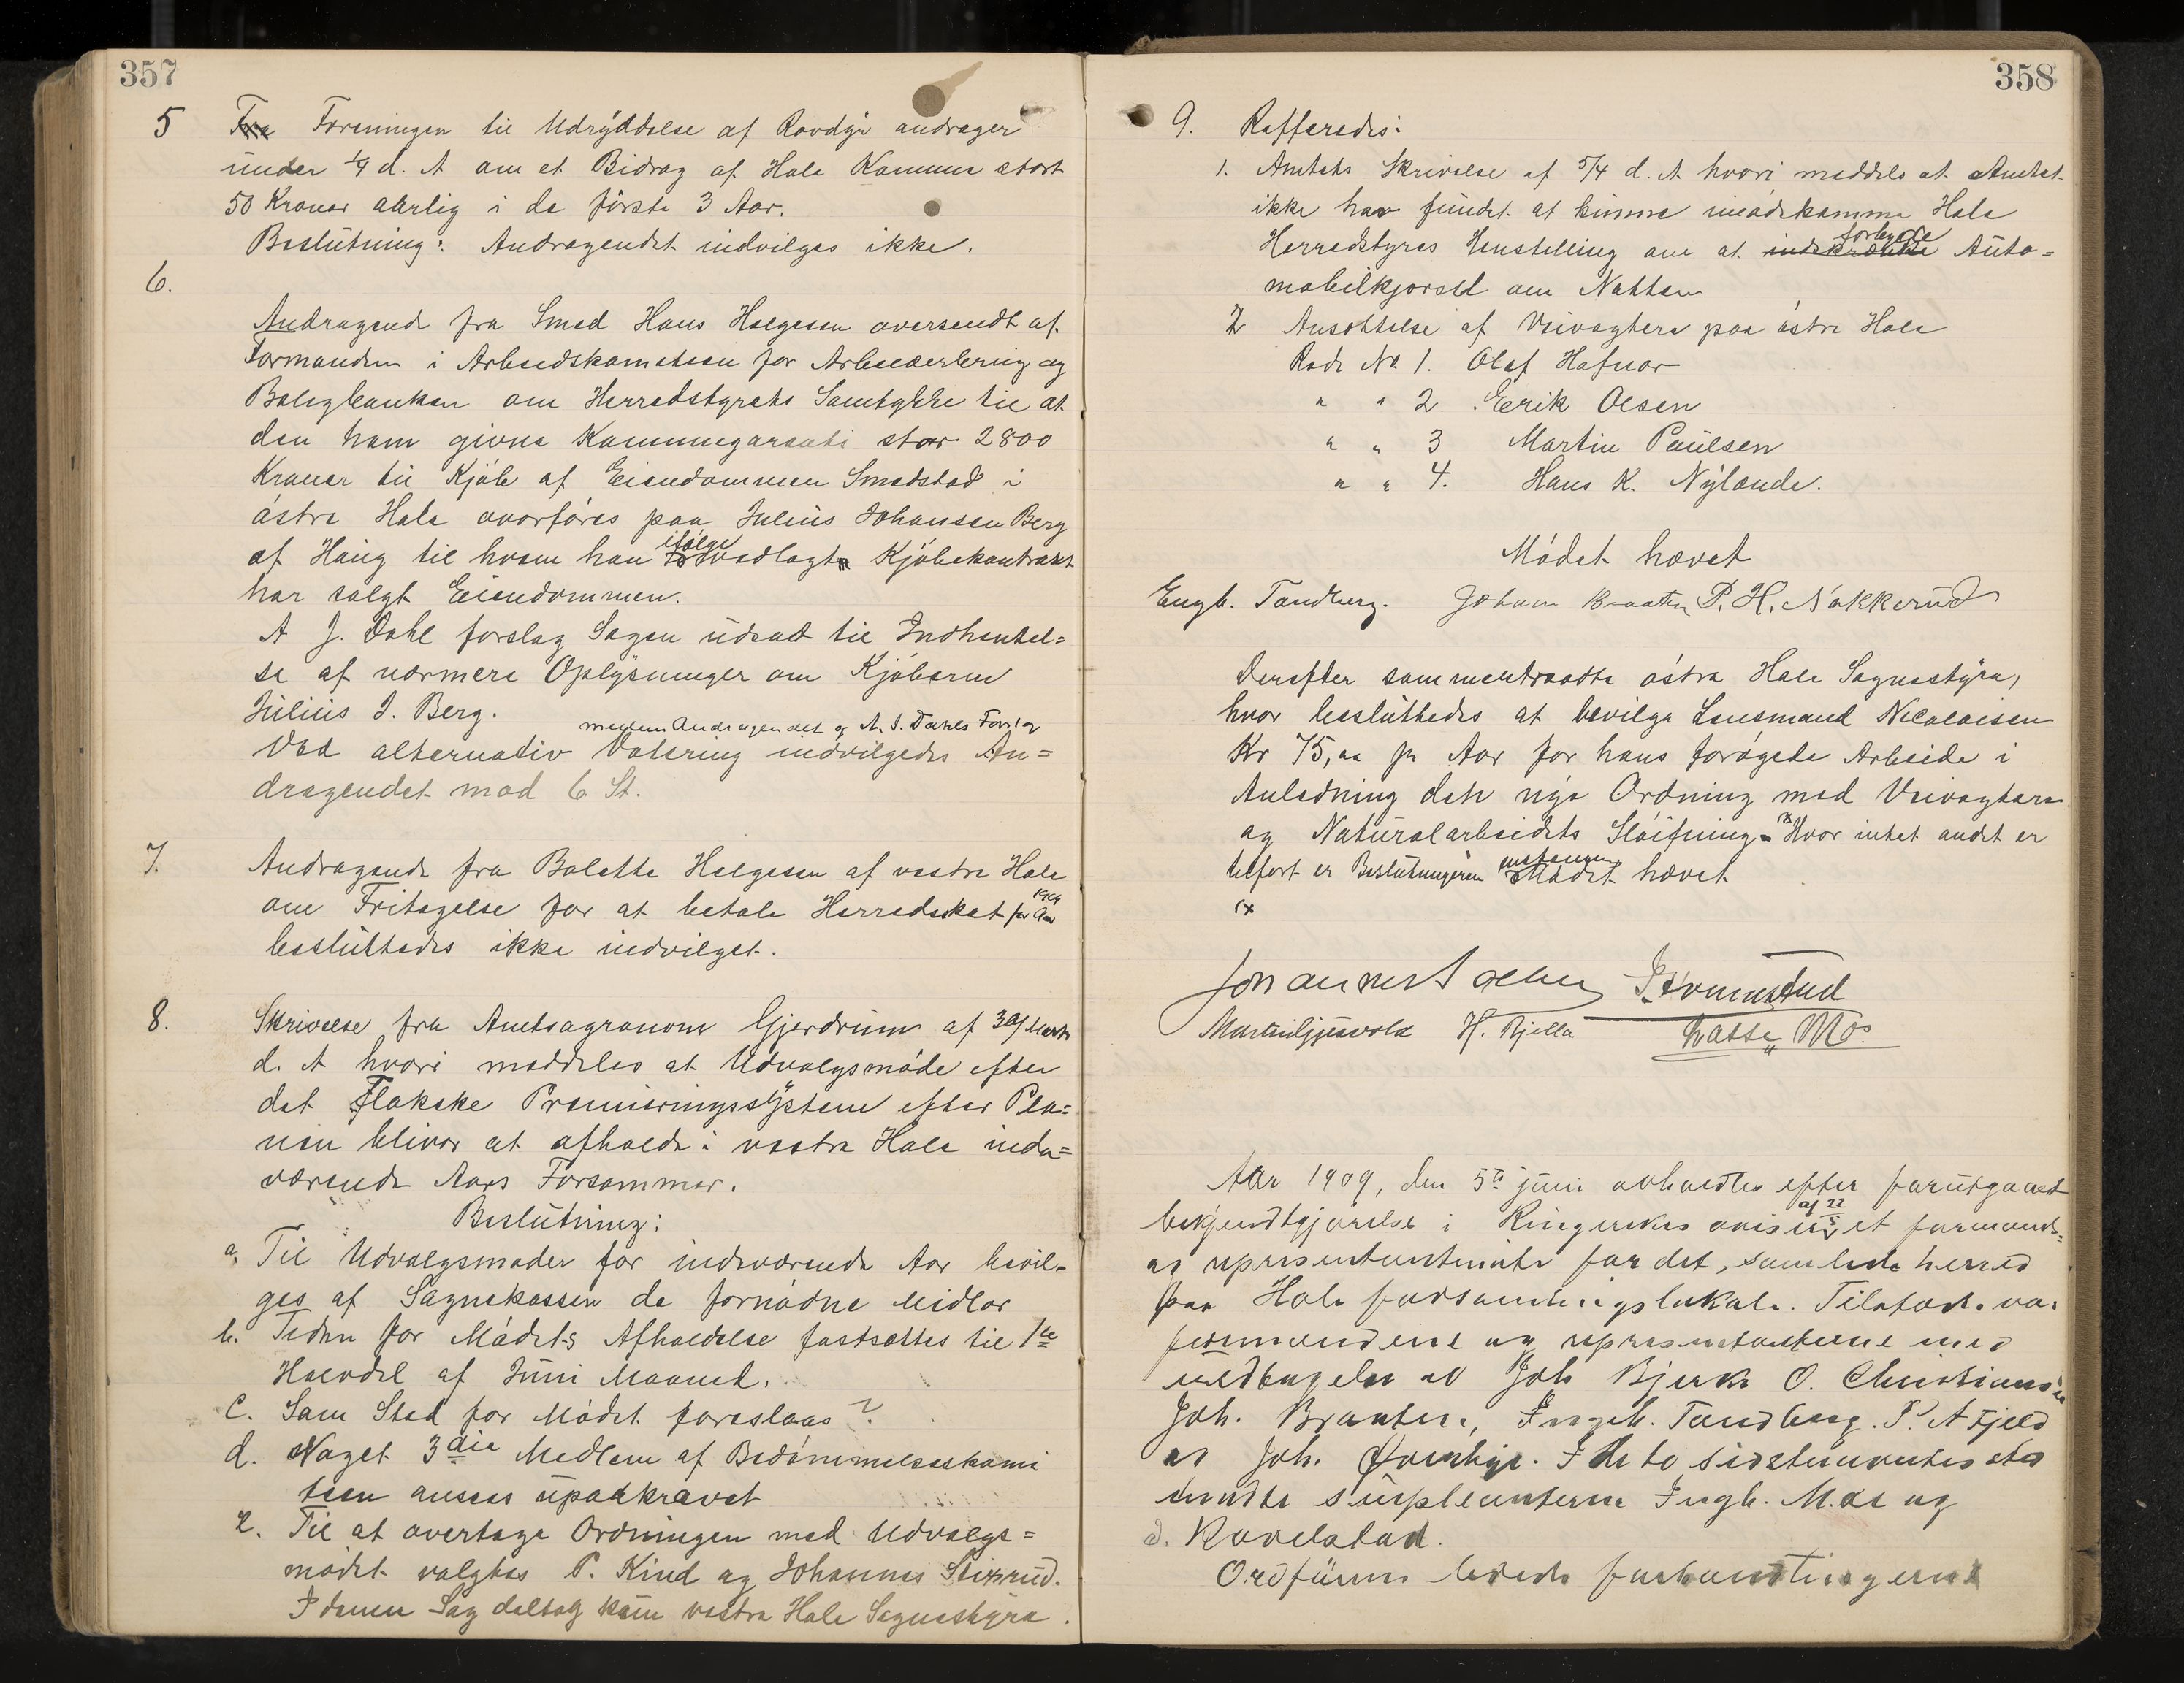 357
5 Fra Foreningen til Udryddelse af Rovdyr andrager
under 1/4 d. A om et Bidrag af Hole Kommune stort
50 Kroner aarlig i de første 3 Aar.
Beslutning: Andragendet indvilges ikke.
6.
Andragende fra Smed Hans Helgesen oversendt af
Formanden i Arbeidskomiteen for Arbeiderbrug og
Boligbanken om Herredstyrets Samtykke til at
den ham givne Kommunegaranti stor 2800
Kroner til Kjøb af Eiendommen Smedstad i
østre Hole overføres paa Julius Johansen Berg
af Haug til hvem han ifølge vedlagte Kjøbekontrakt
har solgt Eiendommen.
A J. Dahl forslag Sagen udsat til Indhentel=
se af nærmere Oplysninger om Kjøberen
Julius J. Berg.
mellem Andragendet og A. J. Dahles Forslag
Ved alternativ Votering indvilgedes An=
dragendet mod 6 St.
7. Andragende fra Bolette Helgesen af vestre Hole
om Fritagelse for at betale Herredskat for Aar
besluttedes ikke indvilget.
8. Skrivelse fra Amtsagronom Gjerdrum af 30/ Marts
d. A hvori meddeles at Udvalgsmøde efter
det Flakske Præmieringssystem efter Pla=
nen bliver at afholde i vestre Hole inde=
værende Aars Forsommer.
Beslutning:
a, Til Udvalgsmøder for indeværende Aar bevil=
ges af Sognekassen de fornødne Midler
b. Tiden for Mødets Afholdelse fastsættes til 1ste
Halvdel af Juni Maaned.
c. Som Sted for Mødet foreslaas ?
d. Noget 3die Medlem af Bedømmelseskomi
teen ansees upaakrævet
2. Til at overtage Ordningen med Udvalgs=
mødet valgtes P. Kind og Johannes Stixrud.
I denne Sag deltog kun vestre Hole Sognestyre.
358
9. Refferedes:
1. Amtets Skrivelse af 5/4 d. A hvori meddeles at Amtet
ikke har fundet at kunne imødekomme Hole
Herredstyres Henstilling om at indskrænke forbyde Auto=
mobilkjørsel om Natten
2 Ansættelse af Veivogtere paa østre Hole
Rode No 1. Olaf Hafnor
" " 2 Eerik Olsen
" " 3 Martin Paulsen
" " 4. Hans K. Nylænde.
Mødet hævet
Engb. Tandberg. Johan Braaten P. H. Nakkerud
Derefter sammentraadte østre Hole Sognestyre,
hvor besluttedes at bevilge Lensmand Nicolaisen
Kr 75,00 pr Aar for hans forøgede Arbeide i
Anledning den nye Ordning med Veivogtere
og Naturalarbeidets Sløifning. Hvor intet andet er
tilført er Beslutningerne enstemmig Mødet hævet
Martin Gjesvold H. Bjella Lasse Mo.
Aar 1909, den 5te juni avholdtes efter forutgaaet
bekjendtgjørelse i Ringerikes aviser af 22/5 et formands=
og representantmøte for det samlede herred
paa Hole forsamlingslokale. Tilstede var
formændene og representanterne med
undtagelse av Joh Bjerke O. Christiansen
Joh. Braaten, Ingeb. Tandberg. P. A Fjeld
og Joh. . I de to sidstnævntes sted
møtte suppleanterne Ingb. Moe og
O. Rovelstad.
Ordføreren ledede forhandlingerne